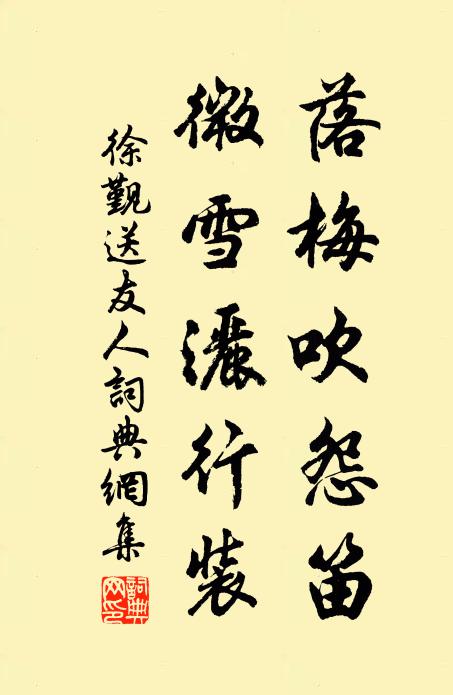 落梅吹怨笛
微雪灑行裝
徐覲送友人詞典網集
詞典網印